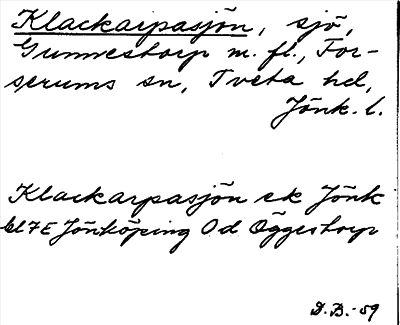 Klackarpasjön, sjö,
Gunnestorp m. fl., For-
serums sn, Tveta hd,
Jönk. l.
Klackarpasjön ek Jönk
bl 7E Jönköping Od Öggestorp
D. B. - 59